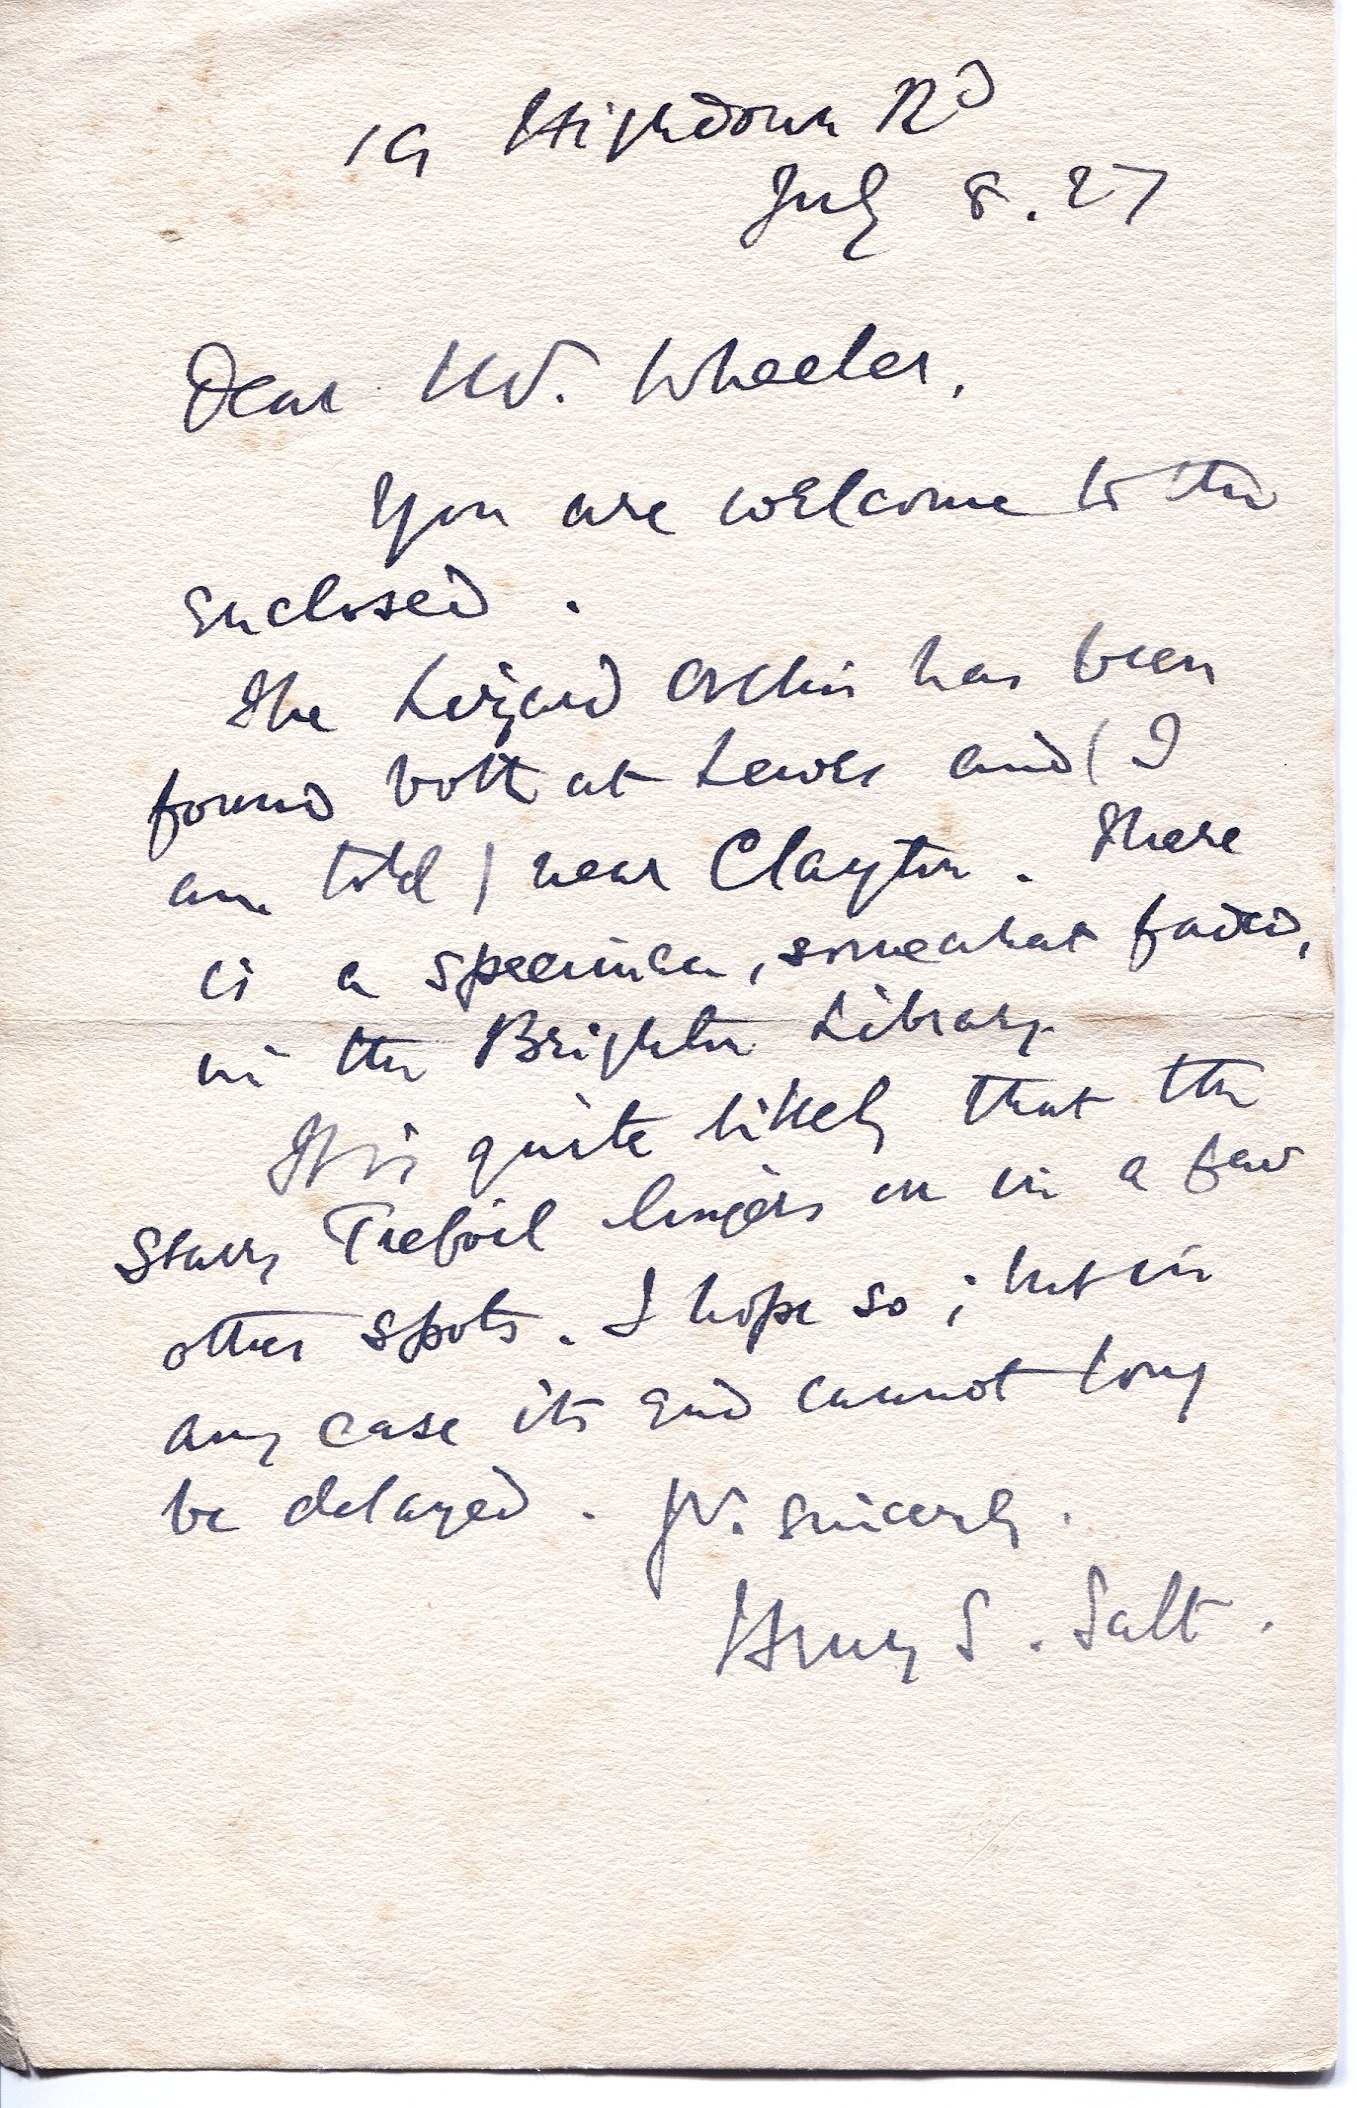 19 Highdown Rd
July 8. 27
Dear Mr. Wheeler,
You are welcome to the
enclosed.
The Lizard Orchis has been
found both at Lewes and (I
am told) near Clayton. There
is a specimen, somewhat faded,
in the Brighton Library.
It is quite likely that the
Starry Trefoil lingers on in a few
other spots. I hope so; but in
any case its end cannot long
be delayed. Yr. sincerely.
Henry S. Salt.